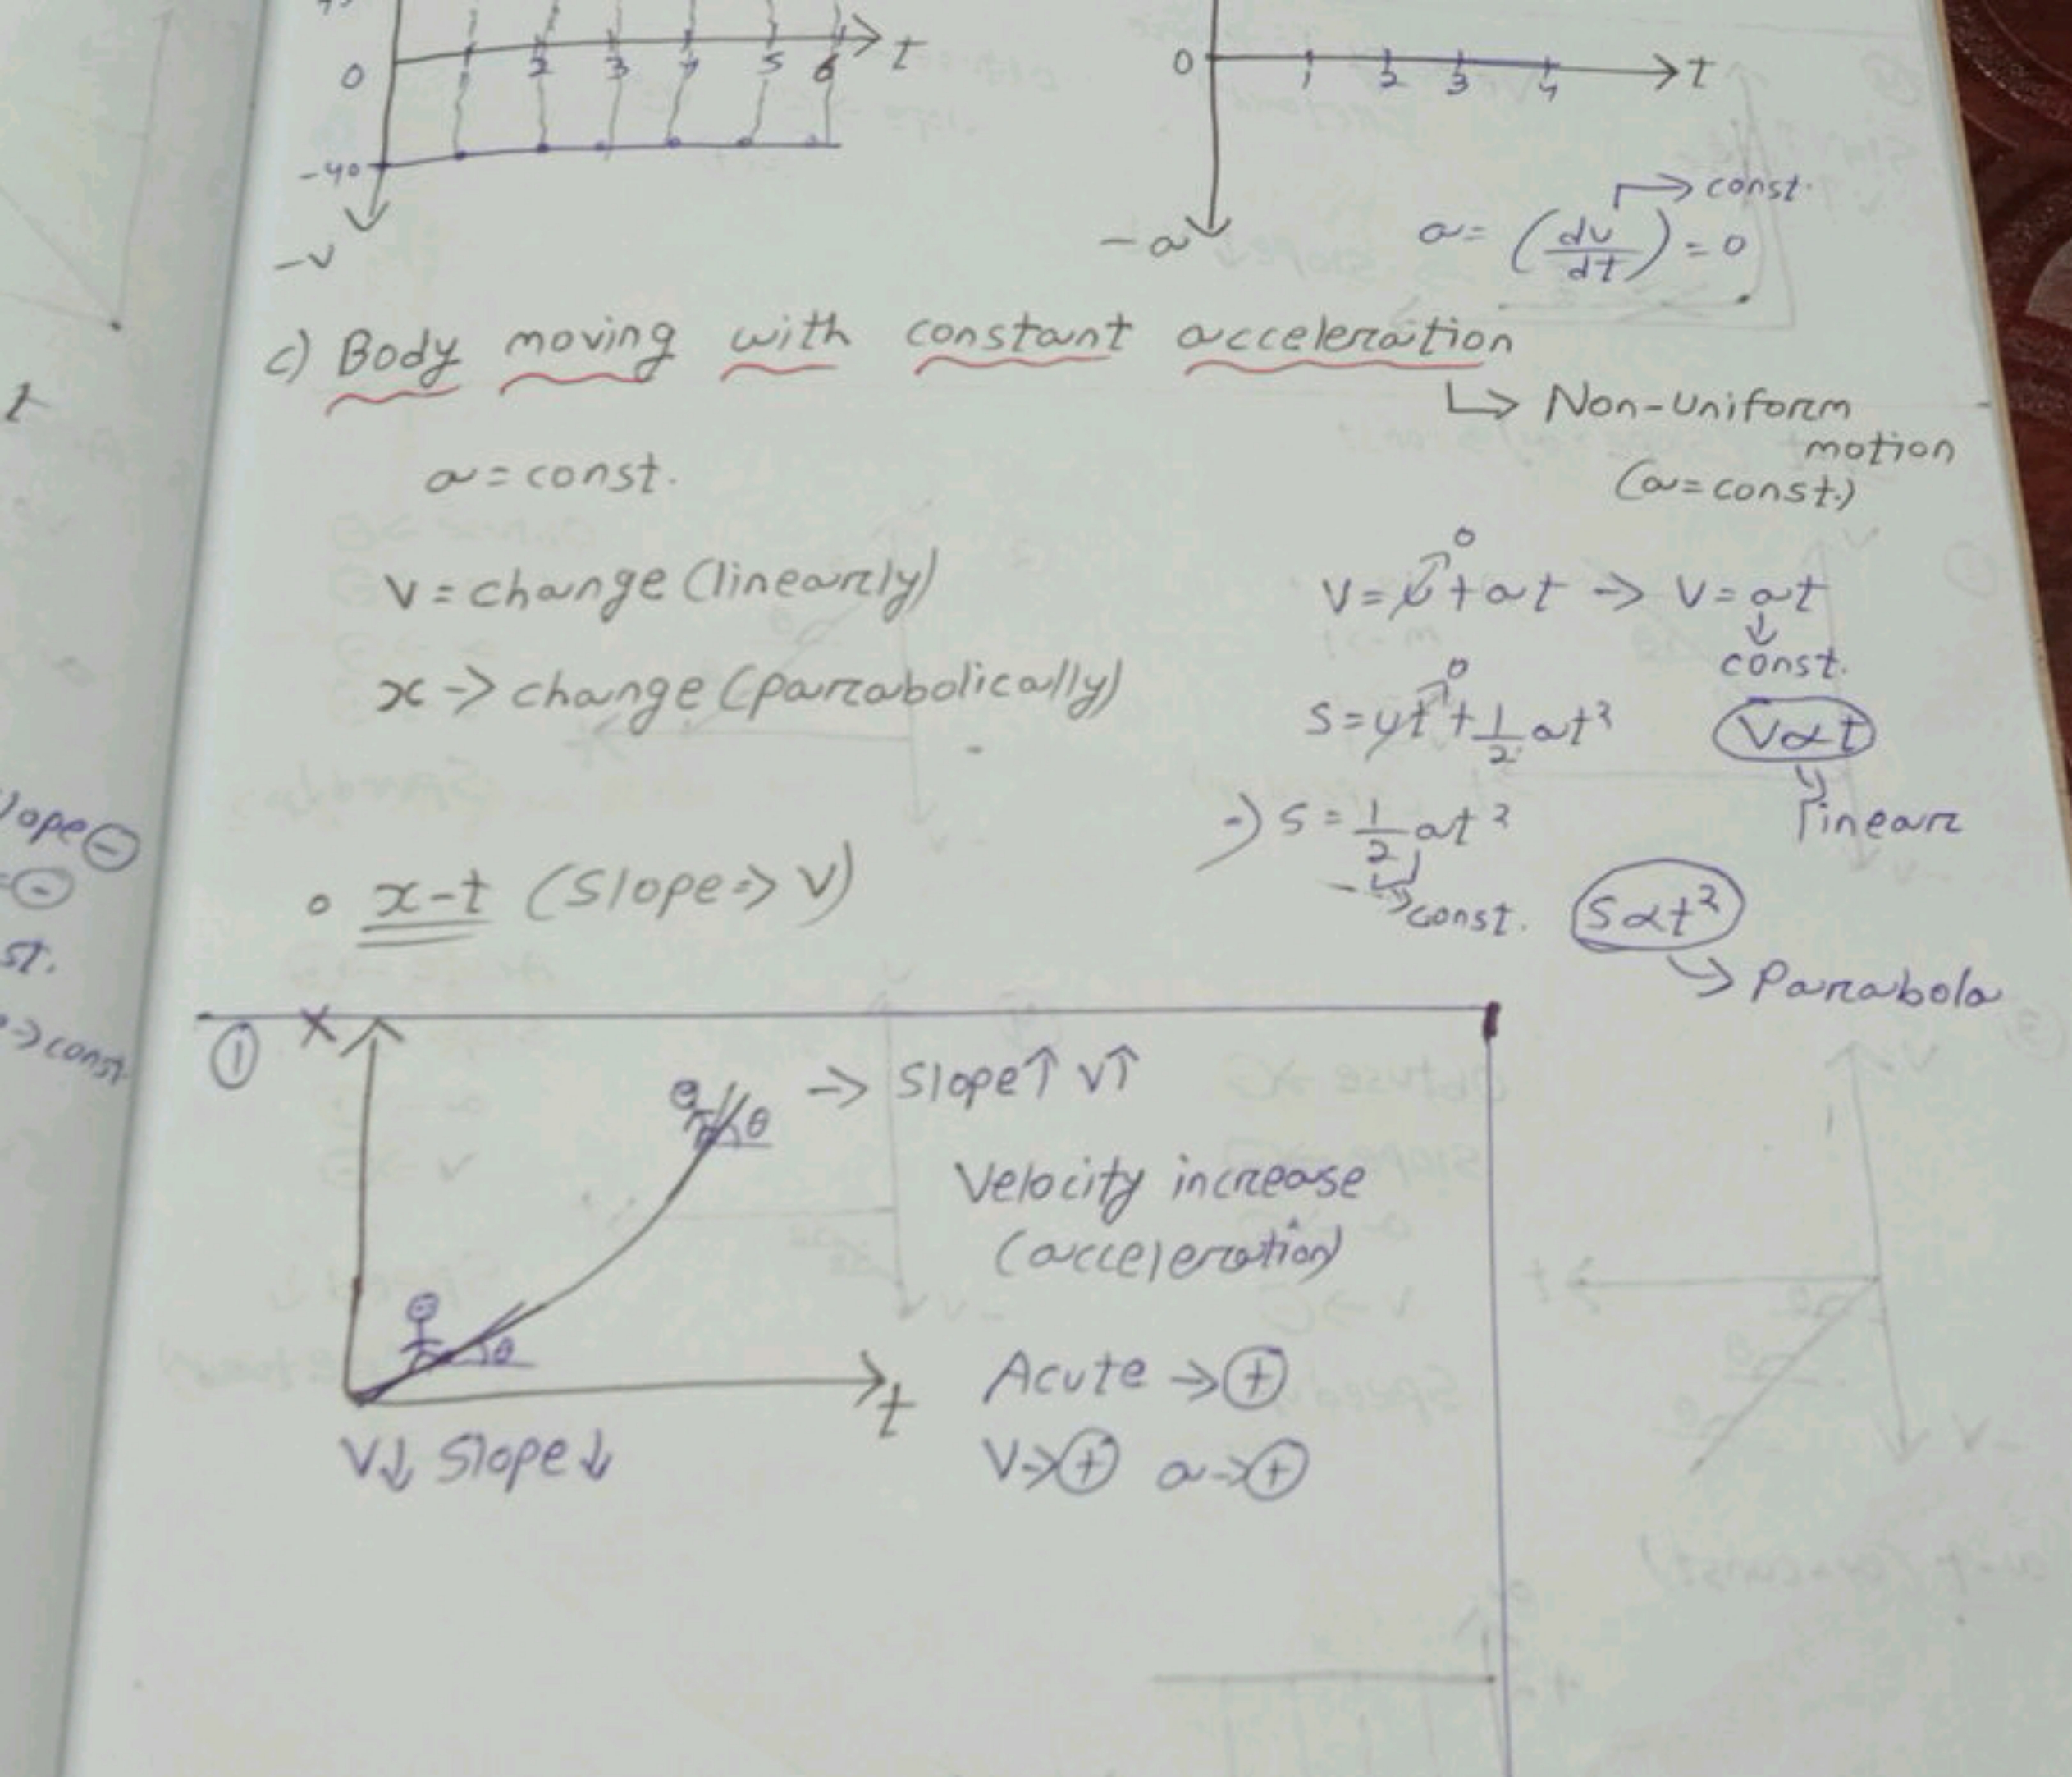 t
0 1 2 3 4 5 6
-40
-v
0 1 2 3 4 t
-a
const.
a = (dv/dt) = 0
c) Body moving with constant acceleration
↳ Non-Uniform
motion
(a=const.)
a = const.
v = change (linearly)
x → change (parabolically)
0
v = u + at → v = at
↓
const.
0
s = ut + 1/2 at²
v ∝ t
linear
⇒ s = 1/2 at²
const.
s ∝ t²
→ Parabola
∘ x-t (Slope ⇒ v)
① x
θ → Slope↑ v↑
Velocity increase
(acceleration)
θ
t
Acute → ⊕
v↓ Slope↓
v → ⊕ a → ⊕
t
lope ⊖
= ⊖
st.
→ const.